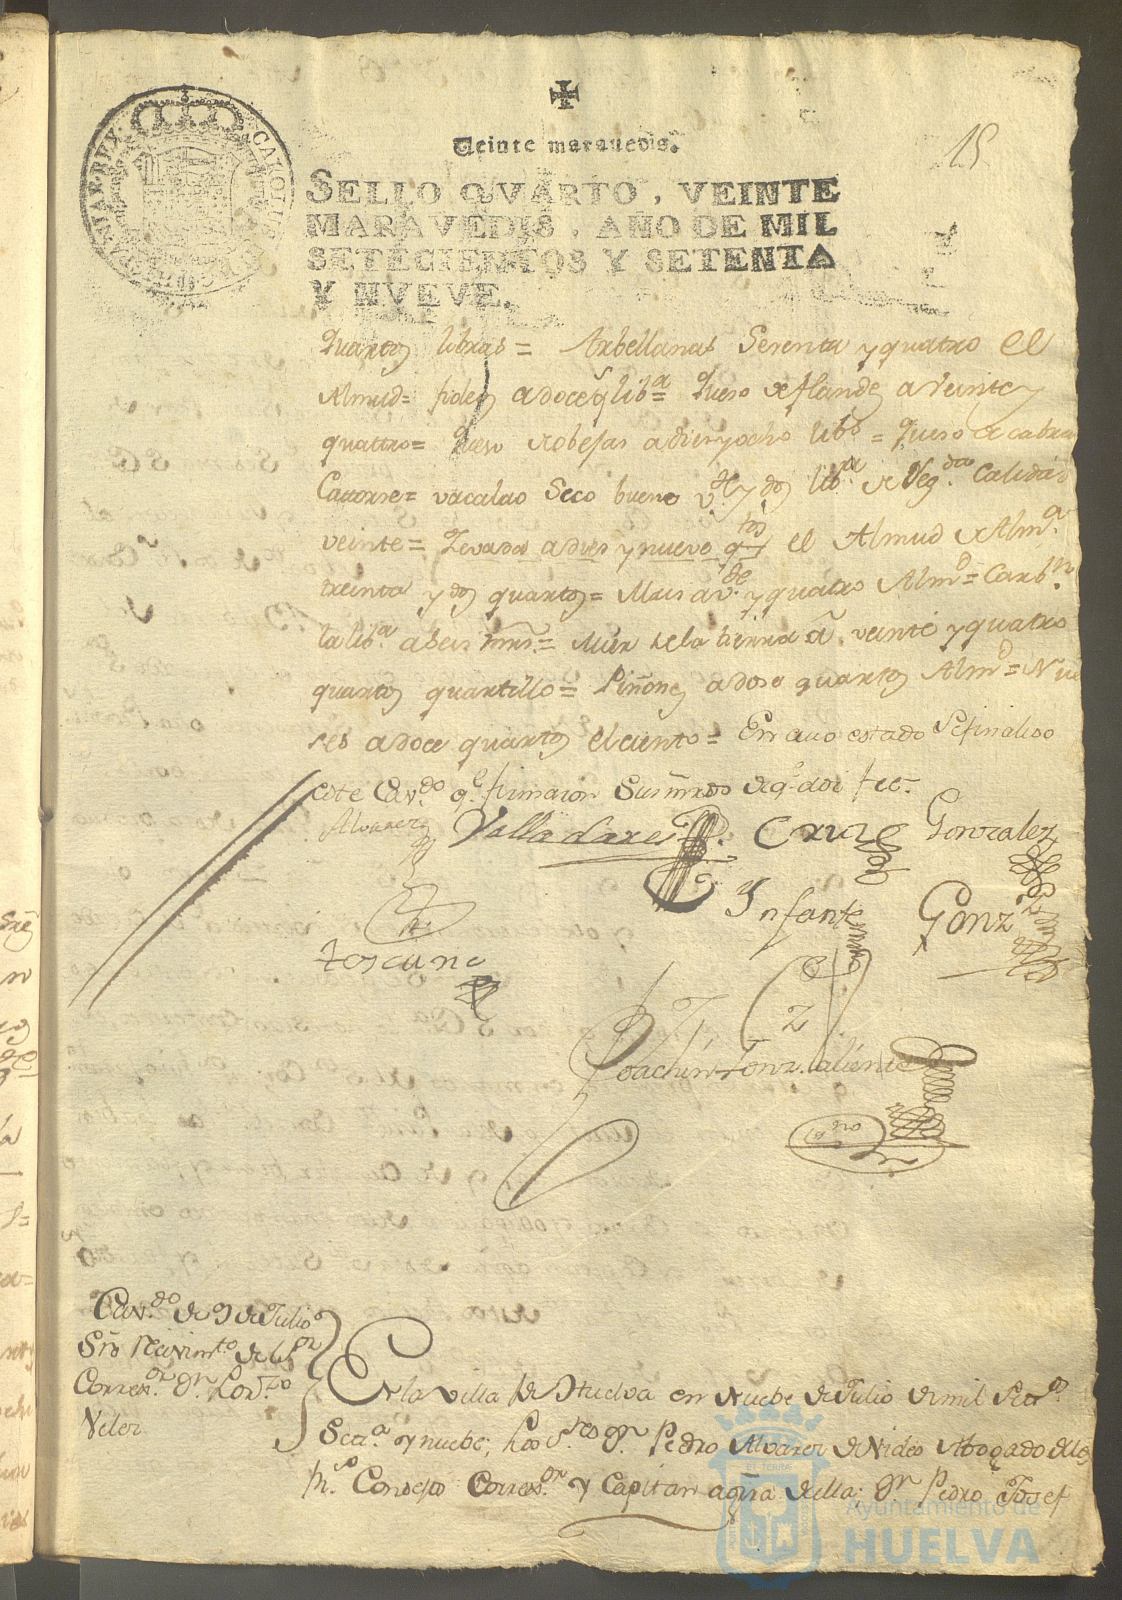 15
Veinte marauedis.
SELLO QVARTO, VEINTE
MARAVEDIS, AÑO DE MIL
SETECIENTOS Y SETENTA
Y NVEVE.
CAROLUS
REX
quartos libras= Arbellanas Serenta y quatro el
Almud= fideos a doce q.s lib.a= Queso de flandes a Veinte y
quattro= Queso de obejas a diez y ocho lib.s = Queso de cabras
Catorse= vacalao Seco bueno v.te y dos lib.a de Seg.da Calidad
veinte= Zevada a dies y nuevo q.tos el Almud de Alm.a
treinta y dos quartos= Mais a v.te y quatro Alm.d= Carb.n
la lib.a a Seis mrs.= Miel de la tierra a veinte y quatro
quartos quartillo= Piñones a dose quartos Alm.d= Nue
ses a doce quartos el ciento= En cuio estado Se finaliso
este Cav.do q.e firmaron Sus mrds de q.e doi fee.-
Alvarez Valladares Cruz Gonzalez
Infante Gonz
toscano
Joachin Gonz. Caliente
ss.no
Cav.do de 9 de Julio
Sre recivim.to de el S.or
Correx.or Dn. Lor.zo
Velez
En la villa de Huelva en Nuebe de Julio de mil Setes.
Set.a y nuebe; Los S.res Dn. Pedro Alvarez de Nideo Abogado de los
R.s Consejo Correx.or y Capitan a grra de ella; Dn Pedro Josef
Ayuntamiento de
HUELVA